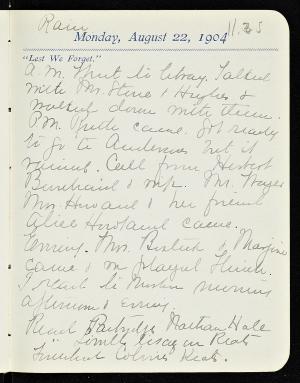 Rain 11.35
Monday, August 22, 1904
"Lest We Forget."
A.M. Went to library. Talked
with Mr. Stone & Hughes &
walked down with them.
P.M. came. Got ready
to go to but it
rained. Call from Herbert
& wife. Mr.
Mrs. Howard & her friend
Alice Howland came.
Evening. Mrs. & Marjorie
came & we played Flinch.
I read to Mother morning
afternoon & evening.
Read Partridge Nathan Hale
" Lowell's essay on Keats
Finished Colvin's Keats.